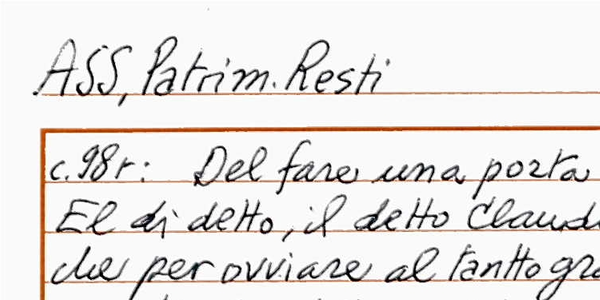 ASS, Patrim. Resti
c. 98r: Del fare una porta
El di detto, il detto Claud
che per ovviare al tantto gra